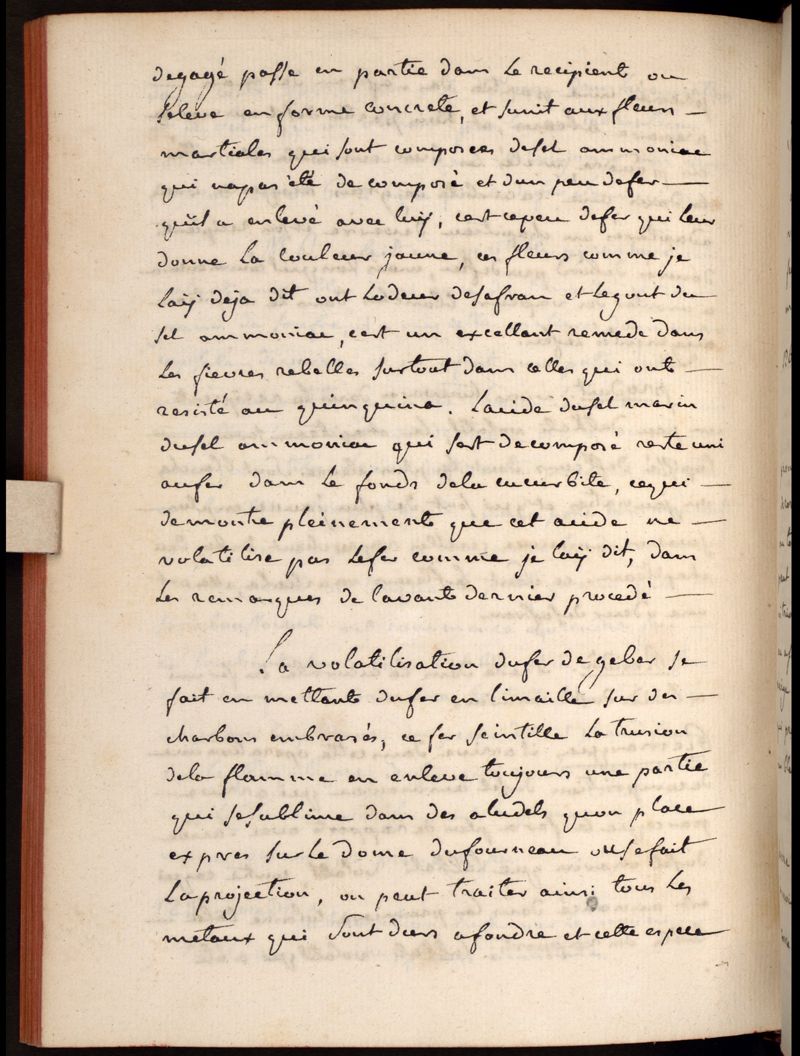 degagé passe en partie dans le recipient ou
seleve en forme concrete, et sunit aux fleurs —
martiales qui sont composees desel ammoniac
qui napas eté decomposé et dun peu defer —
quil a enlevé avec luÿ, cest cepeu defer qui leur
donne la couleur jaune, ces fleurs comme je
laÿ deja dit ont lodeur desafran et legout du
sel ammoniac, cest un excellant remede dans
les fievres rebelles surtout dans celles qui ont —
resisté au quinquina. Lacide dusel marin
dusel ammoniac qui sest decomposé reste uni
aufer dans le fonds dela cucurbite, cequi —
demontre pleinement que cet acide ne —
volatilise pas lefer comme je laÿ dit, dans
les remarques de lavant dernier procedé —
La volatilisation dufer de geber se
fait en mettant dufer en limaille sur des —
charbons embrasés, ce fer scintille
dela flamme en enleve toujours une partie
qui sesublime dans des aludels quon place
expres sur le dome dufourneau ousefait
laprojection, on peut traiter ainsi tous les
metaux qui sont durs afondre et cette espece